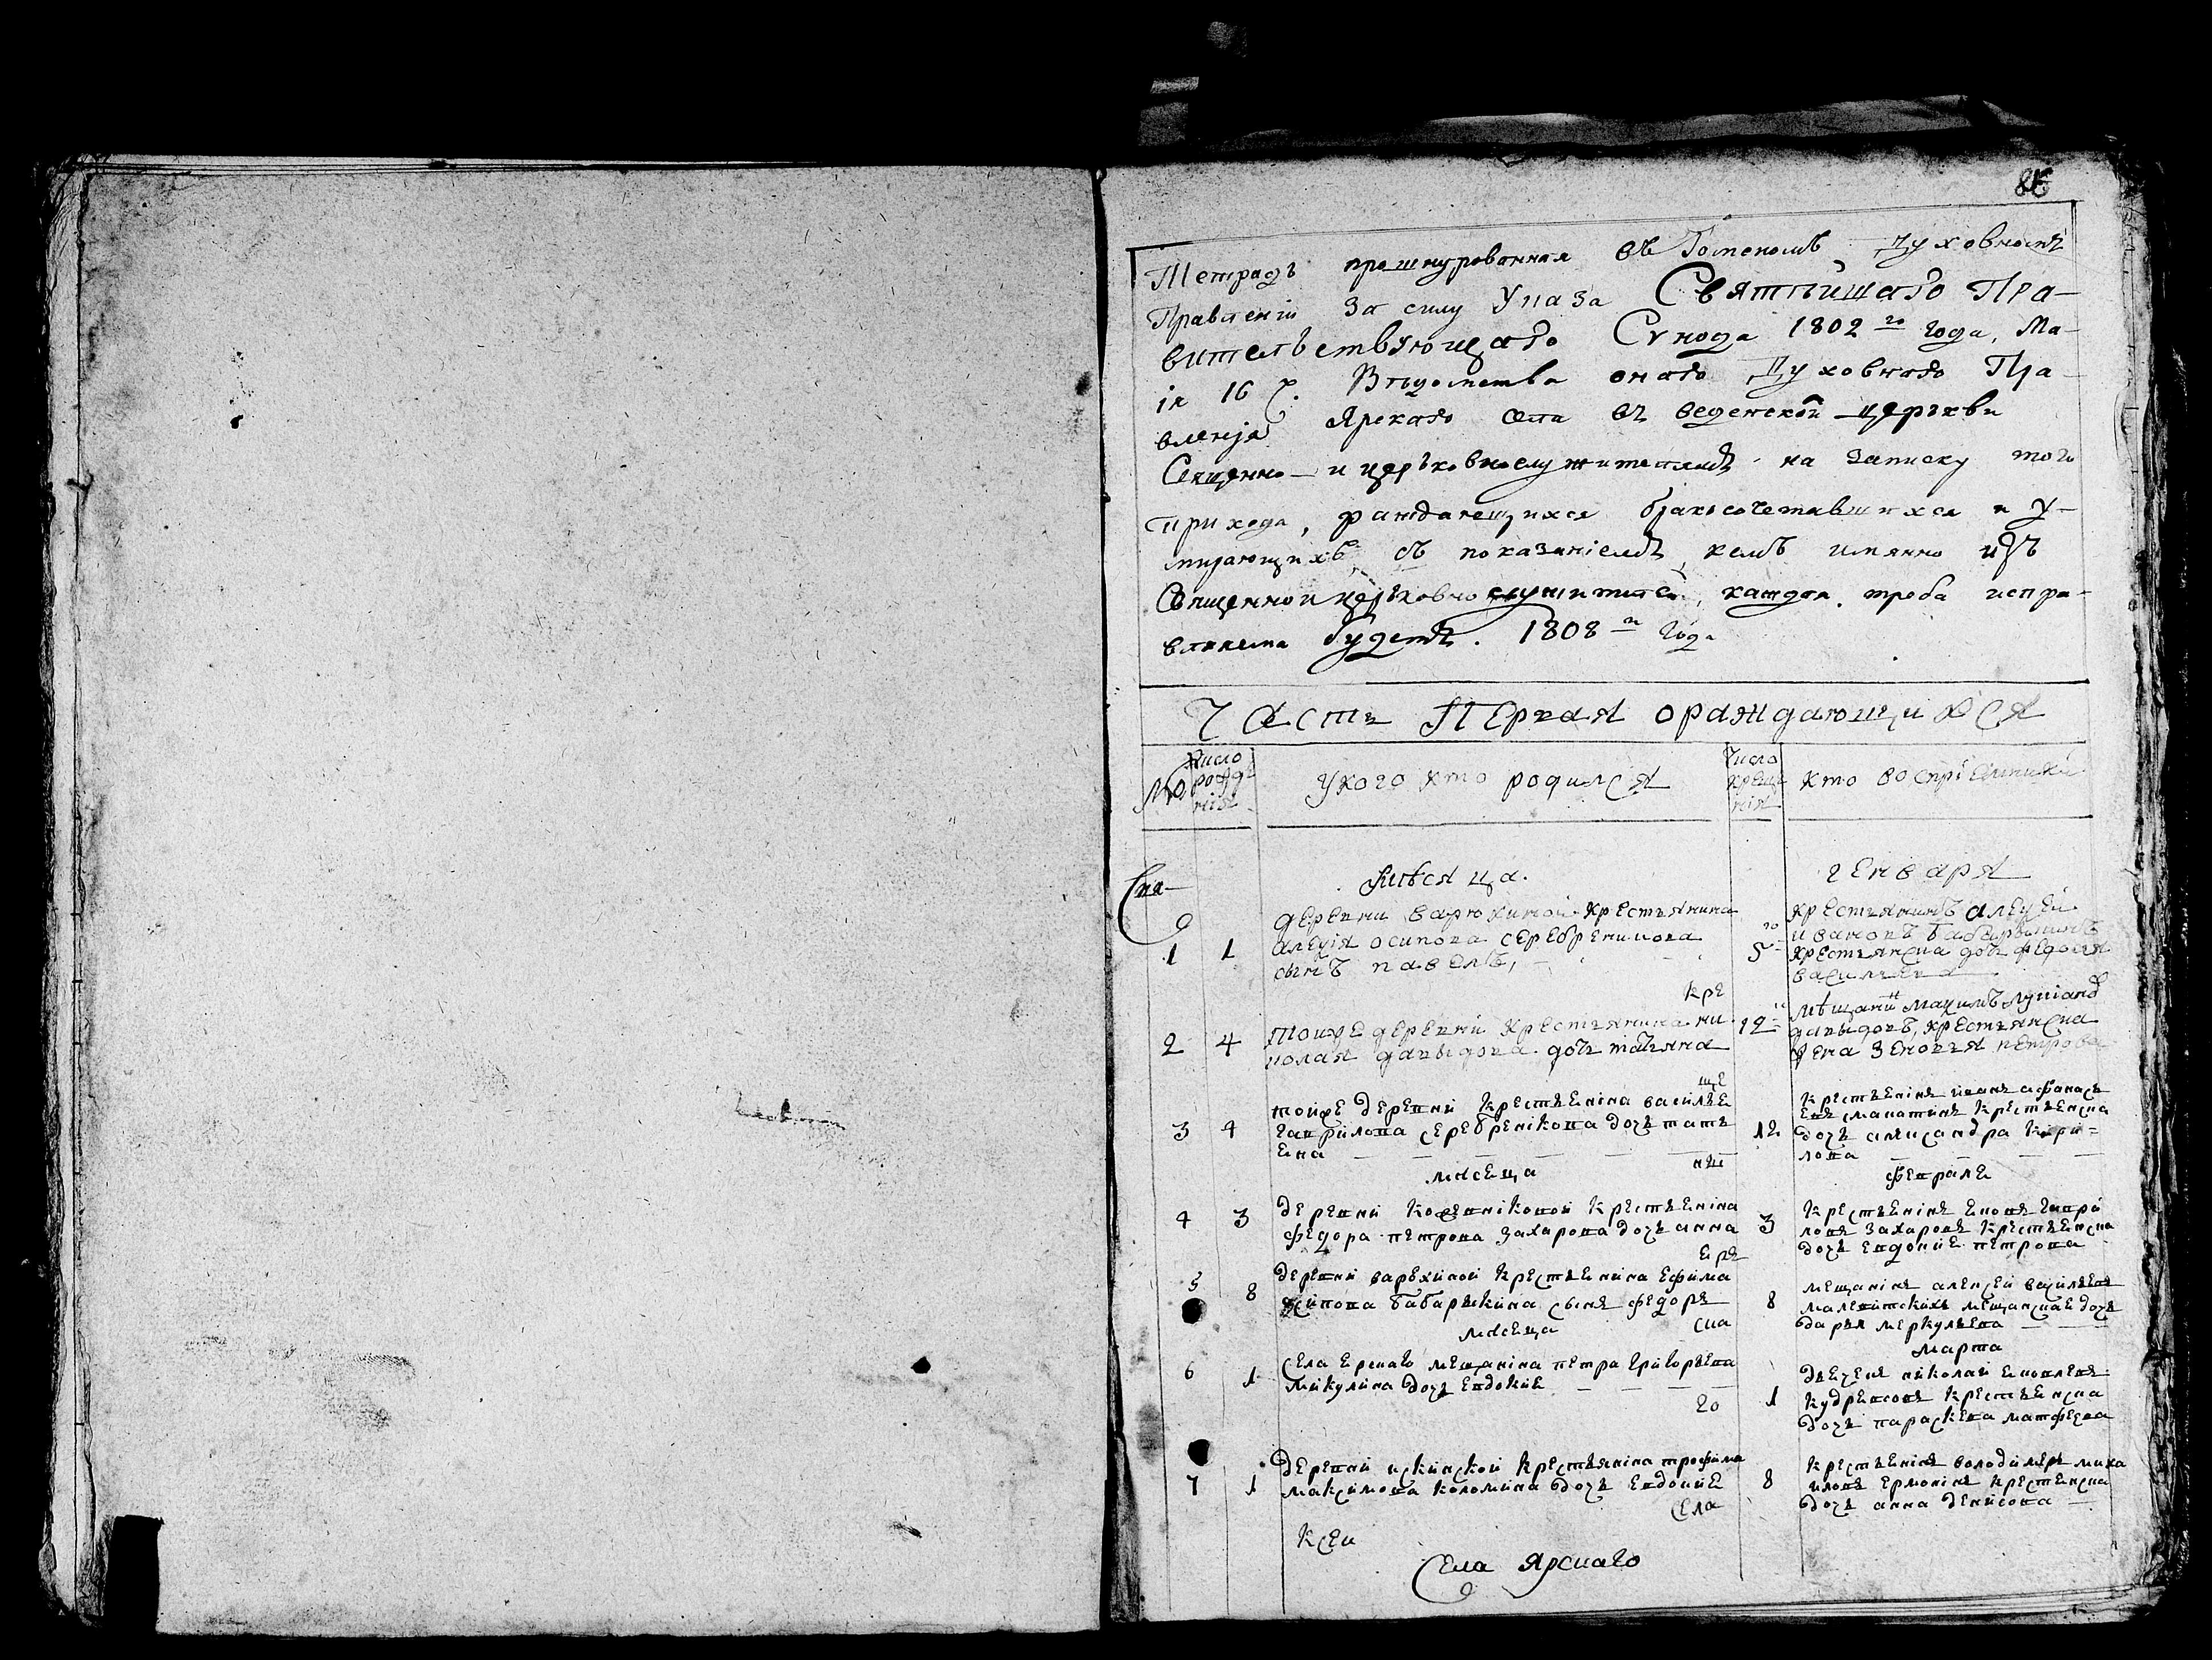 Тетрадь прошнурованная въ духовномъ
Правленіи за силу Указа Святѣйшаго Пра-
вительствующаго Сvнода 1802 го года, Ма-
ія 16 Вѣдомства онаго Духовнаго Пра-
вленія Ярскаго села въ веденской церкви
Священно- и церьковнослужителямъ на записку того
прихода, раждающихся бракосочетавшихся и у-
мирающихъ, съ показаніемъ, кемъ имянно изъ
Священно и церьковнослужителей, каждая треба испра-
вляема будетъ. 1808 го года
Часть первая ораждающихся
№ Число рожде нія
у кого кто родился
Число креще нія
кто воспріемники
мѣсяца генваря
деревни варюхиной крестьянина
1 1 алеѯія осипова серебреникова
сынъ павелъ,
5 го крестьянинъ алеѯей
ивановъ бабарыкинъ
крестьянска дочь федосия
васильева
кре
2 4 тойже деревни крестьянина ни
колая давыдова дочь татьяна
12 мѣщанинъ маѯимъ лукіановъ
давыдовъ, крестьянска
жена зеновья петрова
ще
3 4 тойже деревни крестьенина василье
гаврилова серебреникова дочь тать
ена
12 крестьенинъ иванъ афанасье
евъ крестьенска
дочь александра кири=
лова
мѣсеца февраля
4 3 деревни кожевниковой крестьенина
федора петрова захарова дочь анна
3 крестьенинъ гаври
ловъ захаровъ крестьенска
дочь евдокие петрова
5 8 деревни варюхиной крестьенина ефима
осипова бабарыкина сынъ федоръ
8 мещанинъ алексей васильевъ
мещанская дочь
дарья меркульева
мѣсеца ска марта
6 1 села ерскаго мещанина петра григорьева
микулина дочь евдокие
1 дьеченъ николай
крестьенска
дочь параскева матфеева
го
7 1 деревни искинской крестьянина трофима
максимова коломина дочь евдокие
8 крестьенинъ володимеръ миха
иловъ крестьенска
дочь анна денисова
села
Села Ярскаго